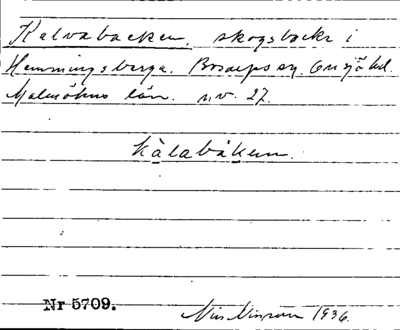 Kalvabacken, skogsbacke i
Hemmingsberga. Bosarps sn. Onsjö hd.
Malmöhus län. n.v. 27.
kàlabàken.
Nr 5709.
1936.